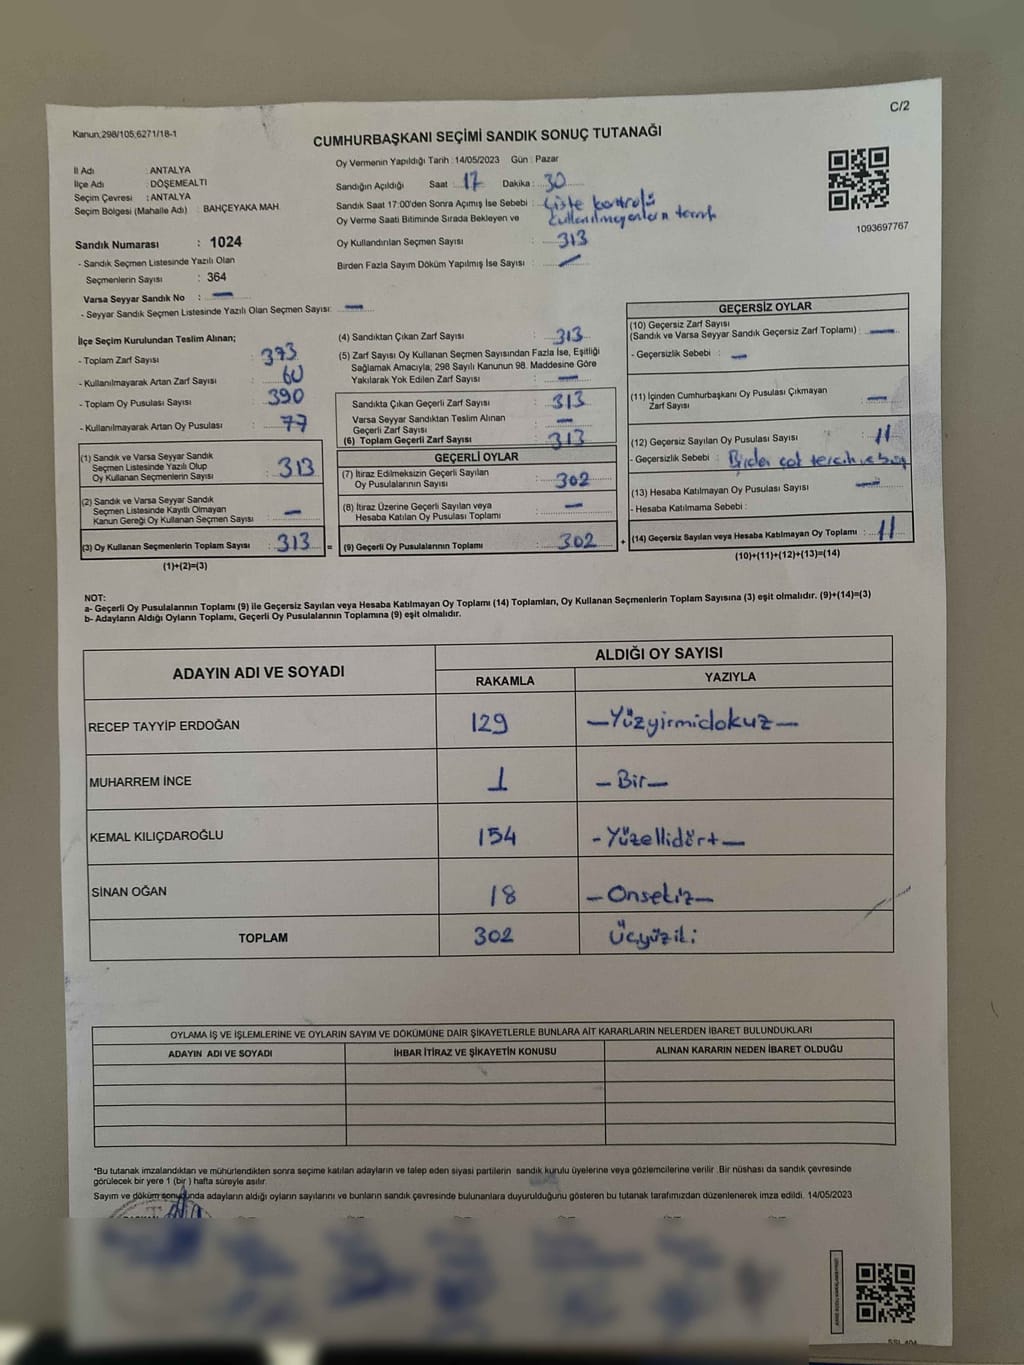 C/2
Kanun;298/105;6271/18-1
CUMHURBAŞKANI SEÇİMİ SANDIK SONUÇ TUTANAĞI
İl Adı : ANTALYA
İlçe Adı : DÖŞEMEALTI
Seçim Çevresi : ANTALYA
Seçim Bölgesi (Mahalle Adı) : BAHÇEYAKA MAH.
Sandık Numarası : 1024
- Sandık Seçmen Listesinde Yazılı Olan
Seçmenlerin Sayısı : 364
Varsa Seyyar Sandık No : —
- Seyyar Sandık Seçmen Listesinde Yazılı Olan Seçmen Sayısı: —
Oy Vermenin Yapıldığı Tarih : 14/05/2023 Gün : Pazar
Sandığın Açıldığı Saat : 17 Dakika : 30
Sandık Saat 17:00'den Sonra Açılmış İse Sebebi : Liste kontrolü
Oy Verme Saati Bitiminde Sırada Bekleyen ve kullanılmayanların
Oy Kullandırılan Seçmen Sayısı : 313
Birden Fazla Sayım Döküm Yapılmış İse Sayısı : —
1093697767
İlçe Seçim Kurulundan Teslim Alınan;
- Toplam Zarf Sayısı : 373
- Kullanılmayarak Artan Zarf Sayısı : 60
- Toplam Oy Pusulası Sayısı : 390
- Kullanılmayarak Artan Oy Pusulası : 77
(1) Sandık ve Varsa Seyyar Sandık
Seçmen Listesinde Yazılı Olup
Oy Kullanan Seçmenlerin Sayısı : 313
(2) Sandık ve Varsa Seyyar Sandık
Seçmen Listesinde Kayıtlı Olmayan
Kanun Gereği Oy Kullanan Seçmen Sayısı : —
(3) Oy Kullanan Seçmenlerin Toplam Sayısı : 313 =
(1)+(2)=(3)
(4) Sandıktan Çıkan Zarf Sayısı : 313
(5) Zarf Sayısı Oy Kullanan Seçmen Sayısından Fazla İse, Eşitliği
Sağlamak Amacıyla; 298 Sayılı Kanunun 98. Maddesine Göre
Yakılarak Yok Edilen Zarf Sayısı : —
Sandıkta Çıkan Geçerli Zarf Sayısı : 313
Varsa Seyyar Sandıktan Teslim Alınan
Geçerli Zarf Sayısı : —
(6) Toplam Geçerli Zarf Sayısı : 313
GEÇERLİ OYLAR
(7) İtiraz Edilmeksizin Geçerli Sayılan
Oy Pusulalarının Sayısı : 302
(8) İtiraz Üzerine Geçerli Sayılan veya
Hesaba Katılan Oy Pusulası Toplamı : —
(9) Geçerli Oy Pusulalarının Toplamı : 302 +
GEÇERSİZ OYLAR
(10) Geçersiz Zarf Sayısı
(Sandık ve Varsa Seyyar Sandık Geçersiz Zarf Toplamı) : —
- Geçersizlik Sebebi : —
(11) İçinden Cumhurbaşkanı Oy Pusulası Çıkmayan
Zarf Sayısı : —
(12) Geçersiz Sayılan Oy Pusulası Sayısı : 11
- Geçersizlik Sebebi : Birden çok tercih ve boş
(13) Hesaba Katılmayan Oy Pusulası Sayısı : —
- Hesaba Katılmama Sebebi :
(14) Geçersiz Sayılan veya Hesaba Katılmayan Oy Toplamı : 11
(10)+(11)+(12)+(13)=(14)
NOT:
a- Geçerli Oy Pusulalarının Toplamı (9) ile Geçersiz Sayılan veya Hesaba Katılmayan Oy Toplamı (14) Toplamları, Oy Kullanan Seçmenlerin Toplam Sayısına (3) eşit olmalıdır. (9)+(14)=(3)
b- Adayların Aldığı Oyların Toplamı, Geçerli Oy Pusulalarının Toplamına (9) eşit olmalıdır.
ADAYIN ADI VE SOYADI ALDIĞI OY SAYISI
RAKAMLA YAZIYLA
RECEP TAYYİP ERDOĞAN 129 —Yüzyirmidokuz—
MUHARREM İNCE 1 —Bir—
KEMAL KILIÇDAROĞLU 154 -Yüzellidört—
SİNAN OĞAN 18 —Onsekiz—
TOPLAM 302 Üçyüziki
OYLAMA İŞ VE İŞLEMLERİNE VE OYLARIN SAYIM VE DÖKÜMÜNE DAİR ŞİKAYETLERLE BUNLARA AİT KARARLARIN NELERDEN İBARET BULUNDUKLARI
ADAYIN ADI VE SOYADI İHBAR İTİRAZ VE ŞİKAYETİN KONUSU ALINAN KARARIN NEDEN İBARET OLDUĞU
*Bu tutanak imzalandıktan ve mühürlendikten sonra seçime katılan adayların ve talep eden siyasi partilerin sandık kurulu üyelerine veya gözlemcilerine verilir .Bir nüshası da sandık çevresinde
görülecek bir yere 1 (bir ) hafta süreyle asılır.
Sayım ve döküm sonucunda adayların aldığı oyların sayılarını ve bunların sandık çevresinde bulunanlara duyurulduğunu gösteren bu tutanak tarafımızdan düzenlenerek imza edildi. 14/05/2023